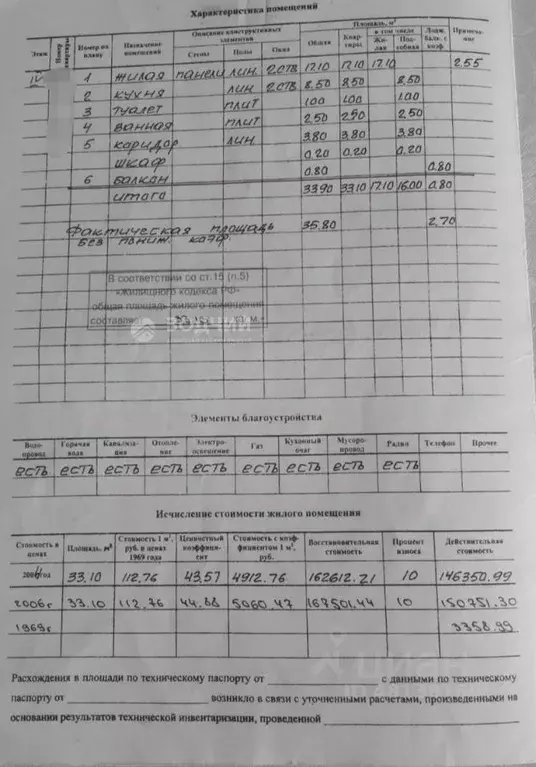 Характеристика помещений
Этаж Номер на плану Назначение помещений Описание конструктивных элементов Площадь, м² Примеча-ние
Стены Полы Окна Общая Квар-тиры в том числе Лодж. балк. с коэф.
Жи-лая Под-собная
IV 1 жилая панели лин. 2 ств 17.10 17.10 17.10 2.55
2 кухня лин. 2 ств 8.50 8.50 8.50
3 туалет плит 1.00 1.00 1.00
4 ванная плит 2.50 2.50 2.50
5 каридор лин. 3.80 3.80 3.80
шкаф 0.20 0.20 0.20
6 балкан 0.80 0.80
итого 33.90 33.10 17.10 16.00 0.80
Фактическая площадь 35.80 2.70
без пониж. коэф.
В соответствии со ст.15 (п.5)
«Жилищного кодекса РФ»
общая площадь жилого помещения
составляет кв.м.
ЗОДЧИЙ
Элементы благоустройства
Водо-провод Горячая вода Канализа-ция Отопле-ние Электро-освещение Газ Кухонный очаг Мусоро-провод Радио Телефон Прочее
есть есть есть есть есть есть есть есть есть
Исчисление стоимости жилого помещения
Стоимость в ценах Площадь, м² Стоимость 1 м², руб. в ценах 1969 года Ценностный коэффици-ент Стоимость с коэф-фициентом 1 м², руб. Восстановительная стоимость Процент износа Действительная стоимость
2004 год 33.10 112.76 43.57 4912.76 162612.21 10 146350.99
2006 г 33.10 112.76 44.88 5060.47 167501.44 10 150751.30
1969 г 3358.99
ЦИАН
Расхождения в площади по техническому паспорту от с данными по техническому
паспорту от возникло в связи с уточненными расчетами, произведенными на
основании результатов технической инвентаризации, проведенной